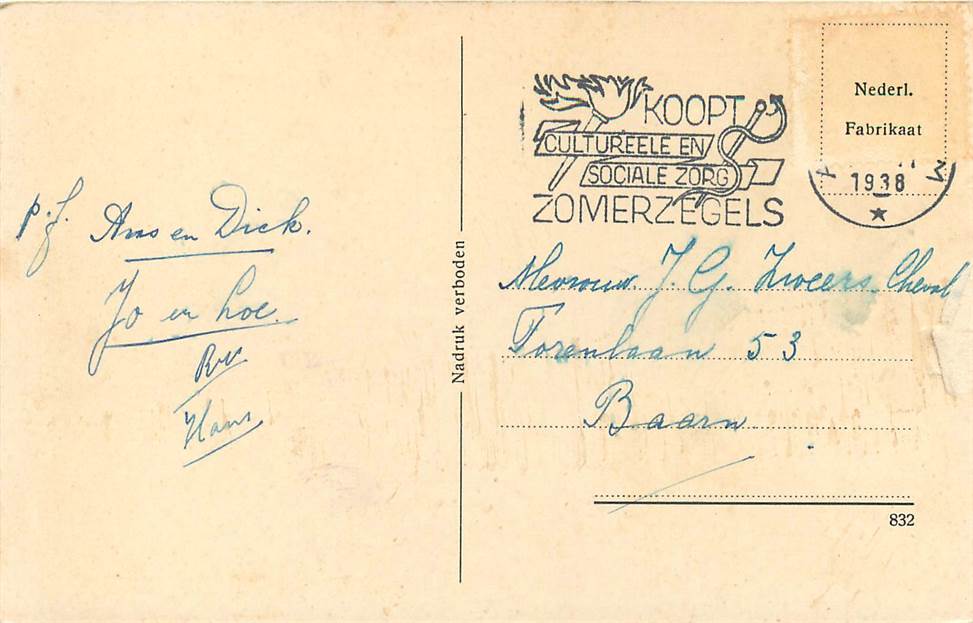 p.f. Ans en Dick.
Jo en Loe.
Hans
Nadruk verboden
KOOPT
CULTUREELE EN
SOCIALE ZORG
ZOMERZEGELS
Nederl.
Fabrikaat
1938
M
Mevrouw J. G. Zweers Cheval
Torenlaan 53
Baarn
832